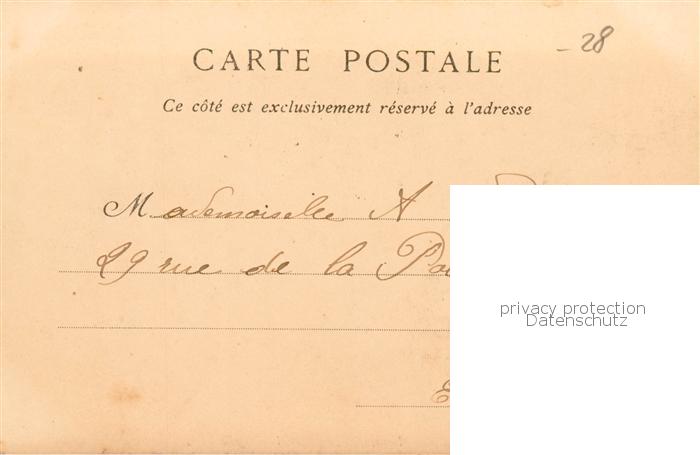 - 28
CARTE POSTALE
Ce côté est exclusivement réservé à l'adresse
Mademoiselle A
29 rue de la
privacy protection
Datenschutz
E